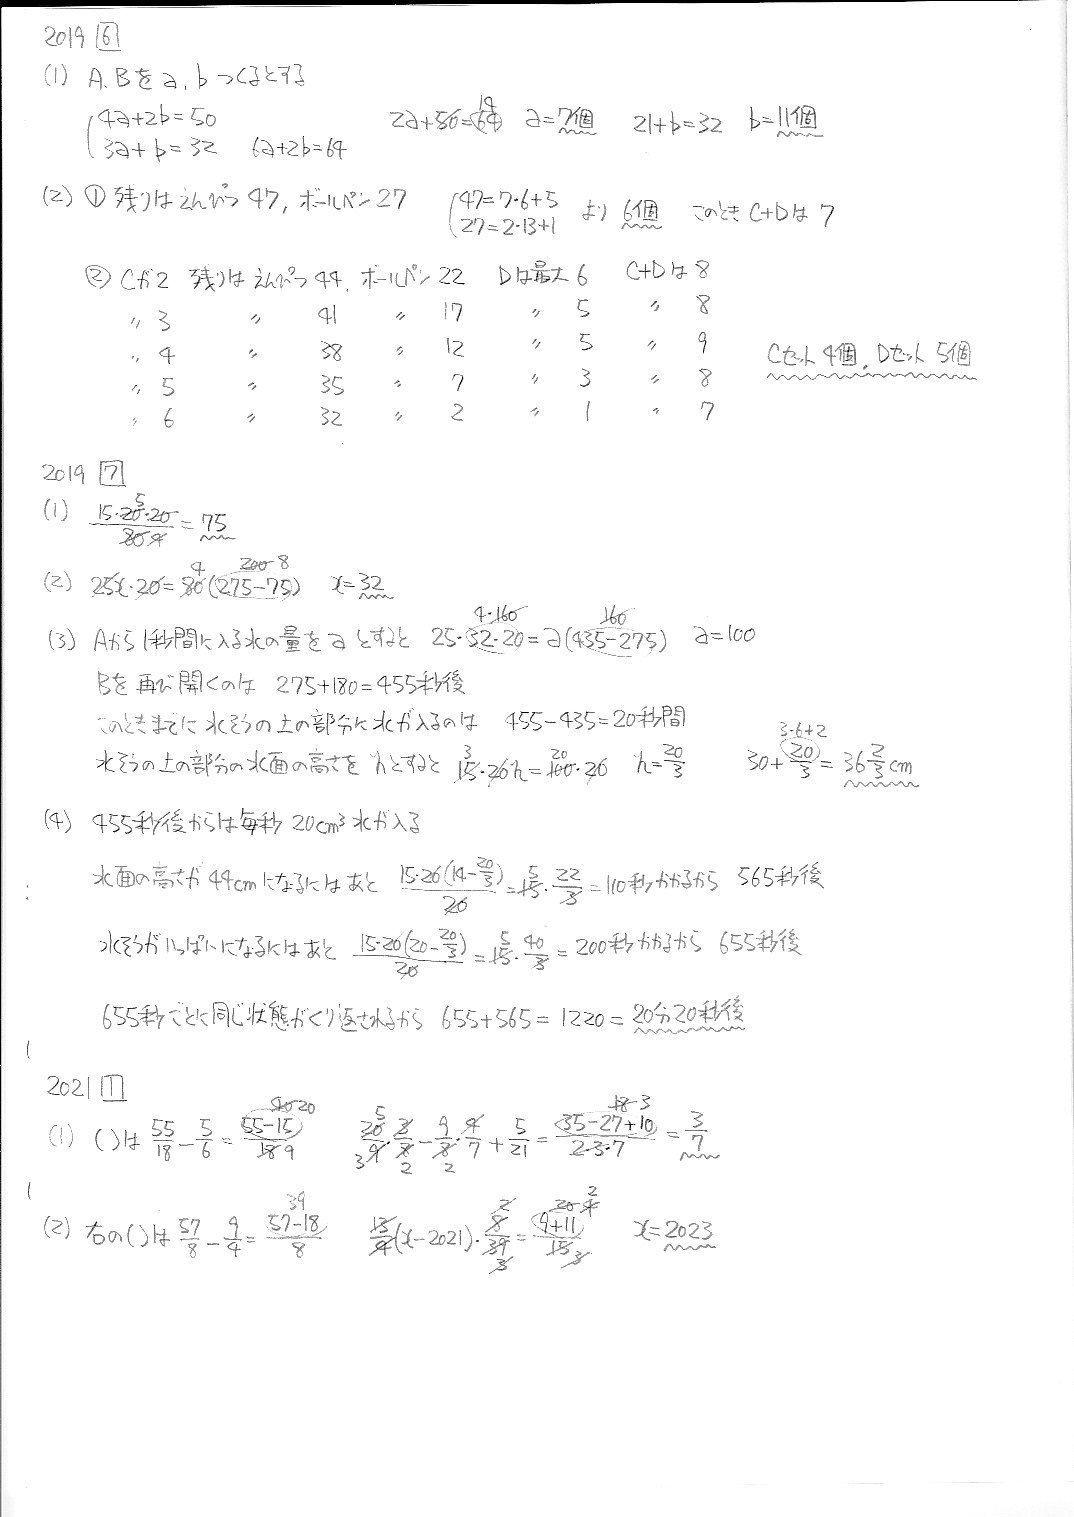 2019 6
(1) A、Bをa、bつくるとする
4a+2b=50
3a+b=32 6a+2b=64 2a+50=64 14 a=7個 21+b=32 b=11個
(2) ① 残りはえんぴつ47, ボールペン27 47=7・6+5 27=2・13+1 より 6個 このときC+Dは 7
② Cが2 残りはえんぴつ44, ボールペン22 Dは最大6 C+Dは8
〃 3 〃 41 〃 17 〃 5 〃 8
〃 4 〃 38 〃 12 〃 5 〃 9 Cセット4個, Dセット5個
〃 5 〃 35 〃 7 〃 3 〃 8
〃 6 〃 32 〃 2 〃 1 〃 7
2019 7
(1) 15・20・20/80 = 75
(2) 25x・20=80(275-75) x=32
(3) Aから1秒間に入る水の量をaとすると 25・32・20=a(435-275) a=100
Bを再び開くのは 275+180=455秒後
このときまでに水そうの上の部分に水が入るのは 455-435=20秒間
水そうの上の部分の水面の高さをhとすると 15・20h=100・20 h=20/3 30+20/3=36 2/3 cm
(4) 455秒後からは毎秒20cm³水が入る
水面の高さが44cmになるにはあと 15・20(14-20/3)/20=15・22/3=110秒かかるから 565秒後
水そうがいっぱいになるにはあと 15・20(20-20/3)/20=15・40/3=200秒かかるから 655秒後
655秒ごとに同じ状態がくり返されるから 655+565=1220=20分20秒後
2021 1
(1) ( )は 55/18-5/6=55-15/18 20/9・3/8-9/8・4/7+5/21=35-27+10/2・3・7=3/7
(2) 右の( )は 57/8-9/4=57-18/8 13/4(x-2021)・8/39=9+11/15 x=2023